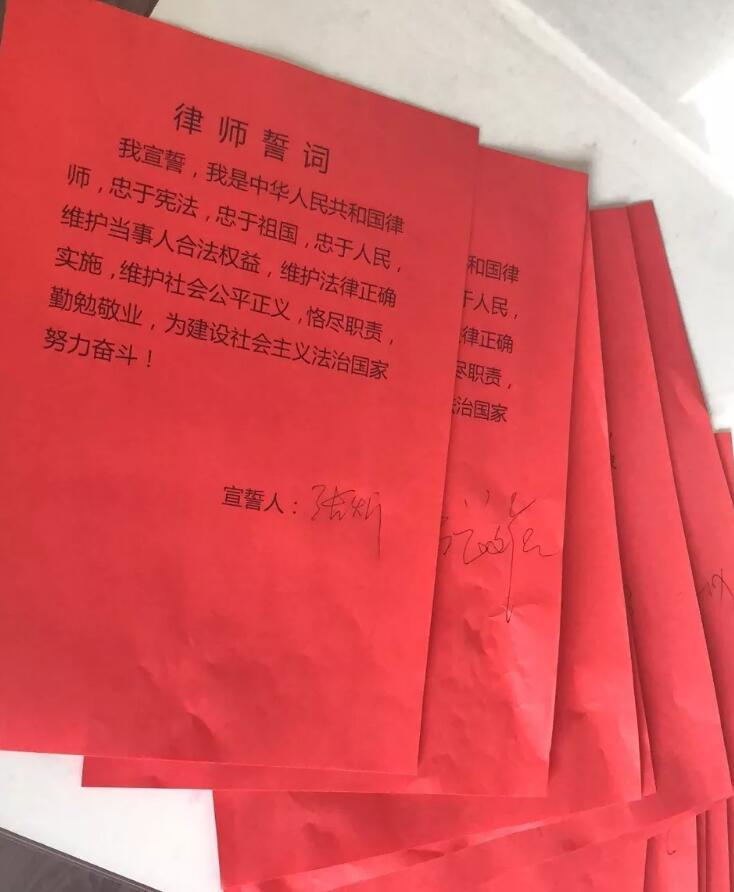 律师誓词
我宣誓，我是中华人民共和国律
师，忠于宪法，忠于祖国，忠于人民，
维护当事人合法权益，维护法律正确
实施，维护社会公平正义，恪尽职责，
勤勉敬业，为建设社会主义法治国家
努力奋斗！
宣誓人：
和国律
于人民，
律正确
尽职责，
治国家